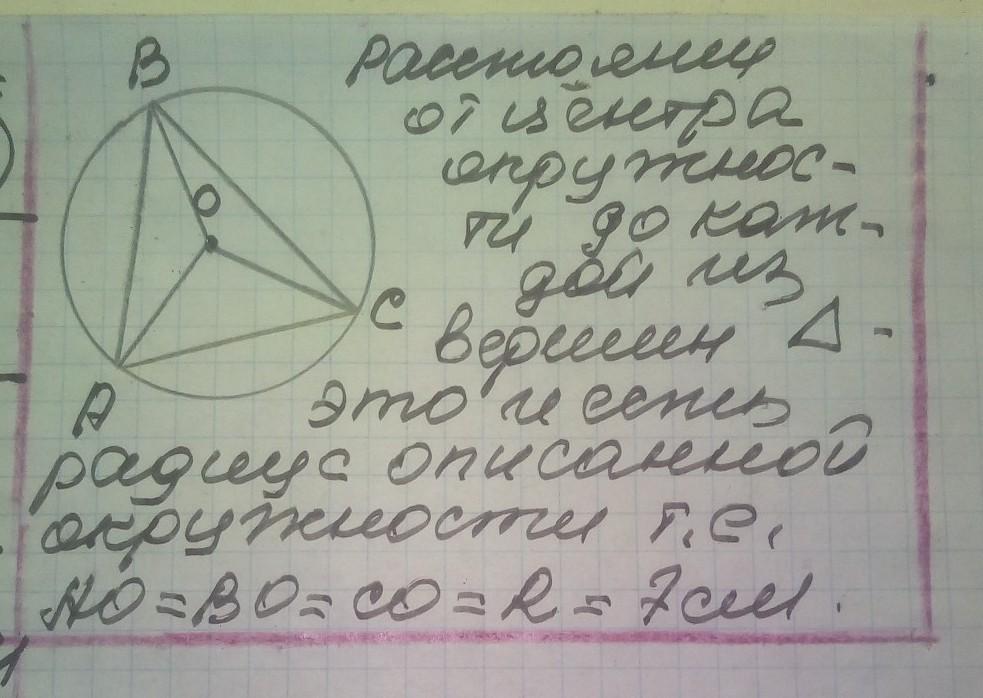 B
Расстояние
от центра
окружнос-
O
ти до каж-
дой из
C
вершин Δ -
A
это и есть
радиус описанной
окружности т.е.
AO = BO = CO = R = 7см.